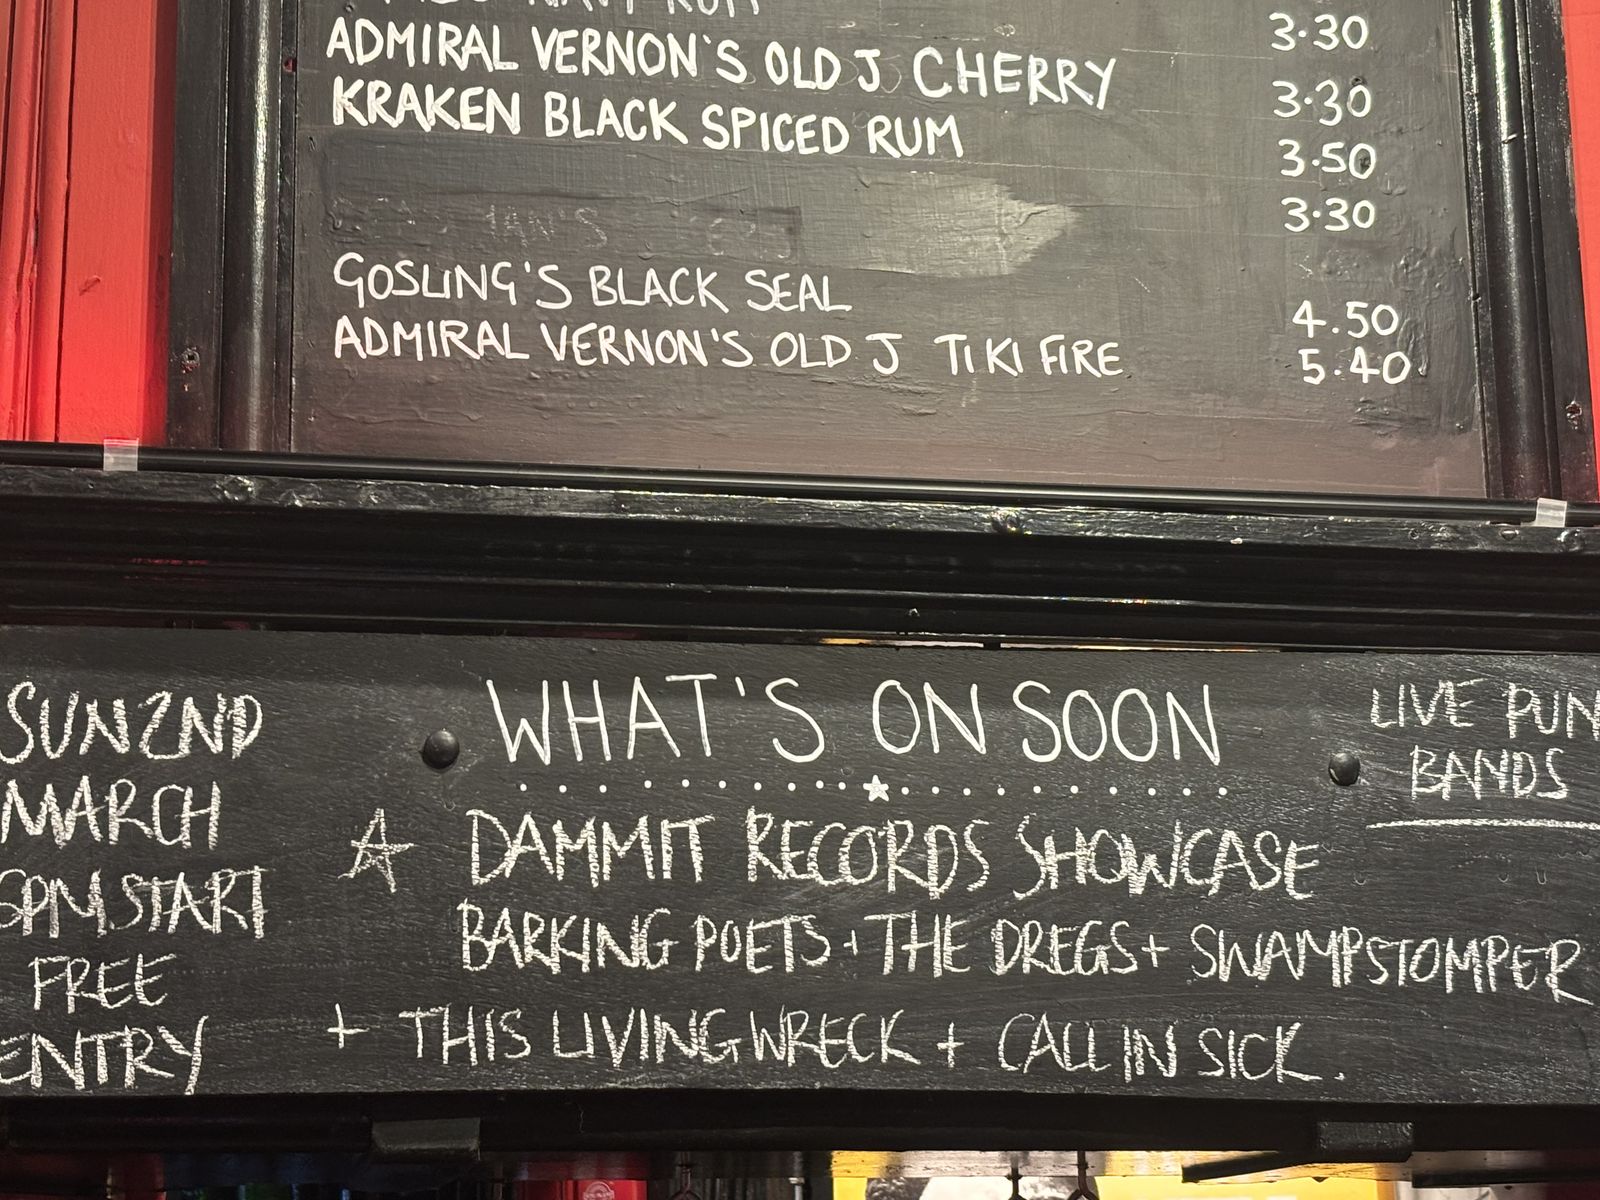 RUM 3.30
ADMIRAL VERNON'S OLD J CHERRY 3.30
KRAKEN BLACK SPICED RUM 3.50
3.30
GOSLING'S BLACK SEAL 4.50
ADMIRAL VERNON'S OLD J TIKI FIRE 5.40
WHAT'S ON SOON
SUN 2ND
MARCH
6PM START
FREE
ENTRY
DAMMIT RECORDS SHOWCASE
BARKING POETS + THE DREGS + SWAMPSTOMPER
+ THIS LIVING WRECK + CALL IN SICK.
LIVE PUN
BANDS